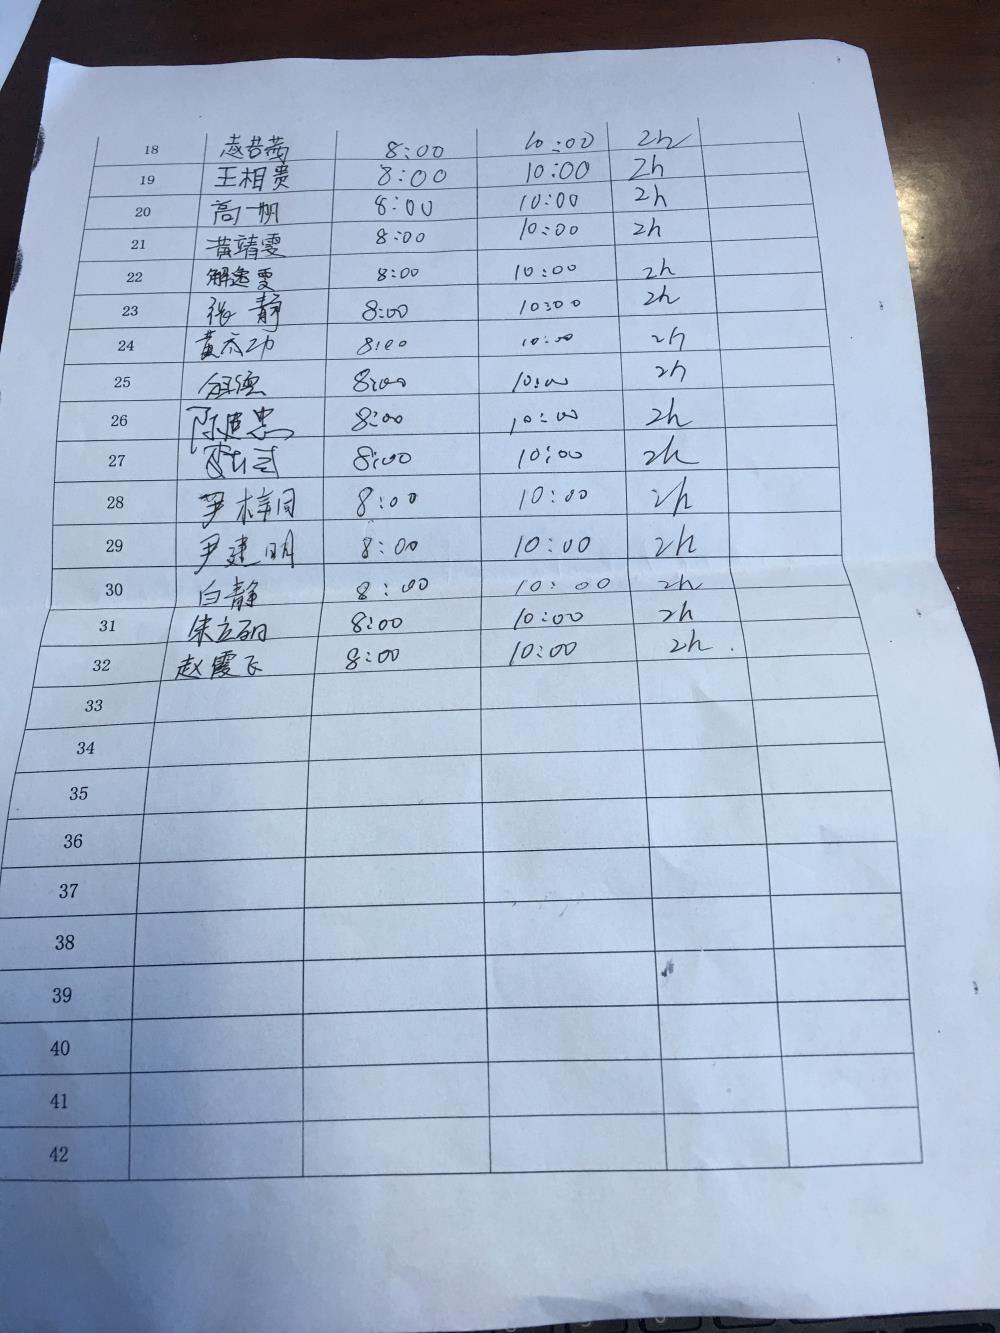 18 8:00 10:00 2h
19 王相贵 8:00 10:00 2h
20 高一帆 8:00 10:00 2h
21 黄靖雯 8:00 10:00 2h
22 解逸雯 8:00 10:00 2h
23 张静 8:00 10:00 2h
24 8:00 10:00 2h
25 8:00 10:00 2h
26 8:00 10:00 2h
27 8:00 10:00 2h
28 尹梓同 8:00 10:00 2h
29 尹建明 8:00 10:00 2h
30 白静 8:00 10:00 2h
31 8:00 10:00 2h
32 赵霞飞 8:00 10:00 2h.
33
34
35
36
37
38
39
40
41
42